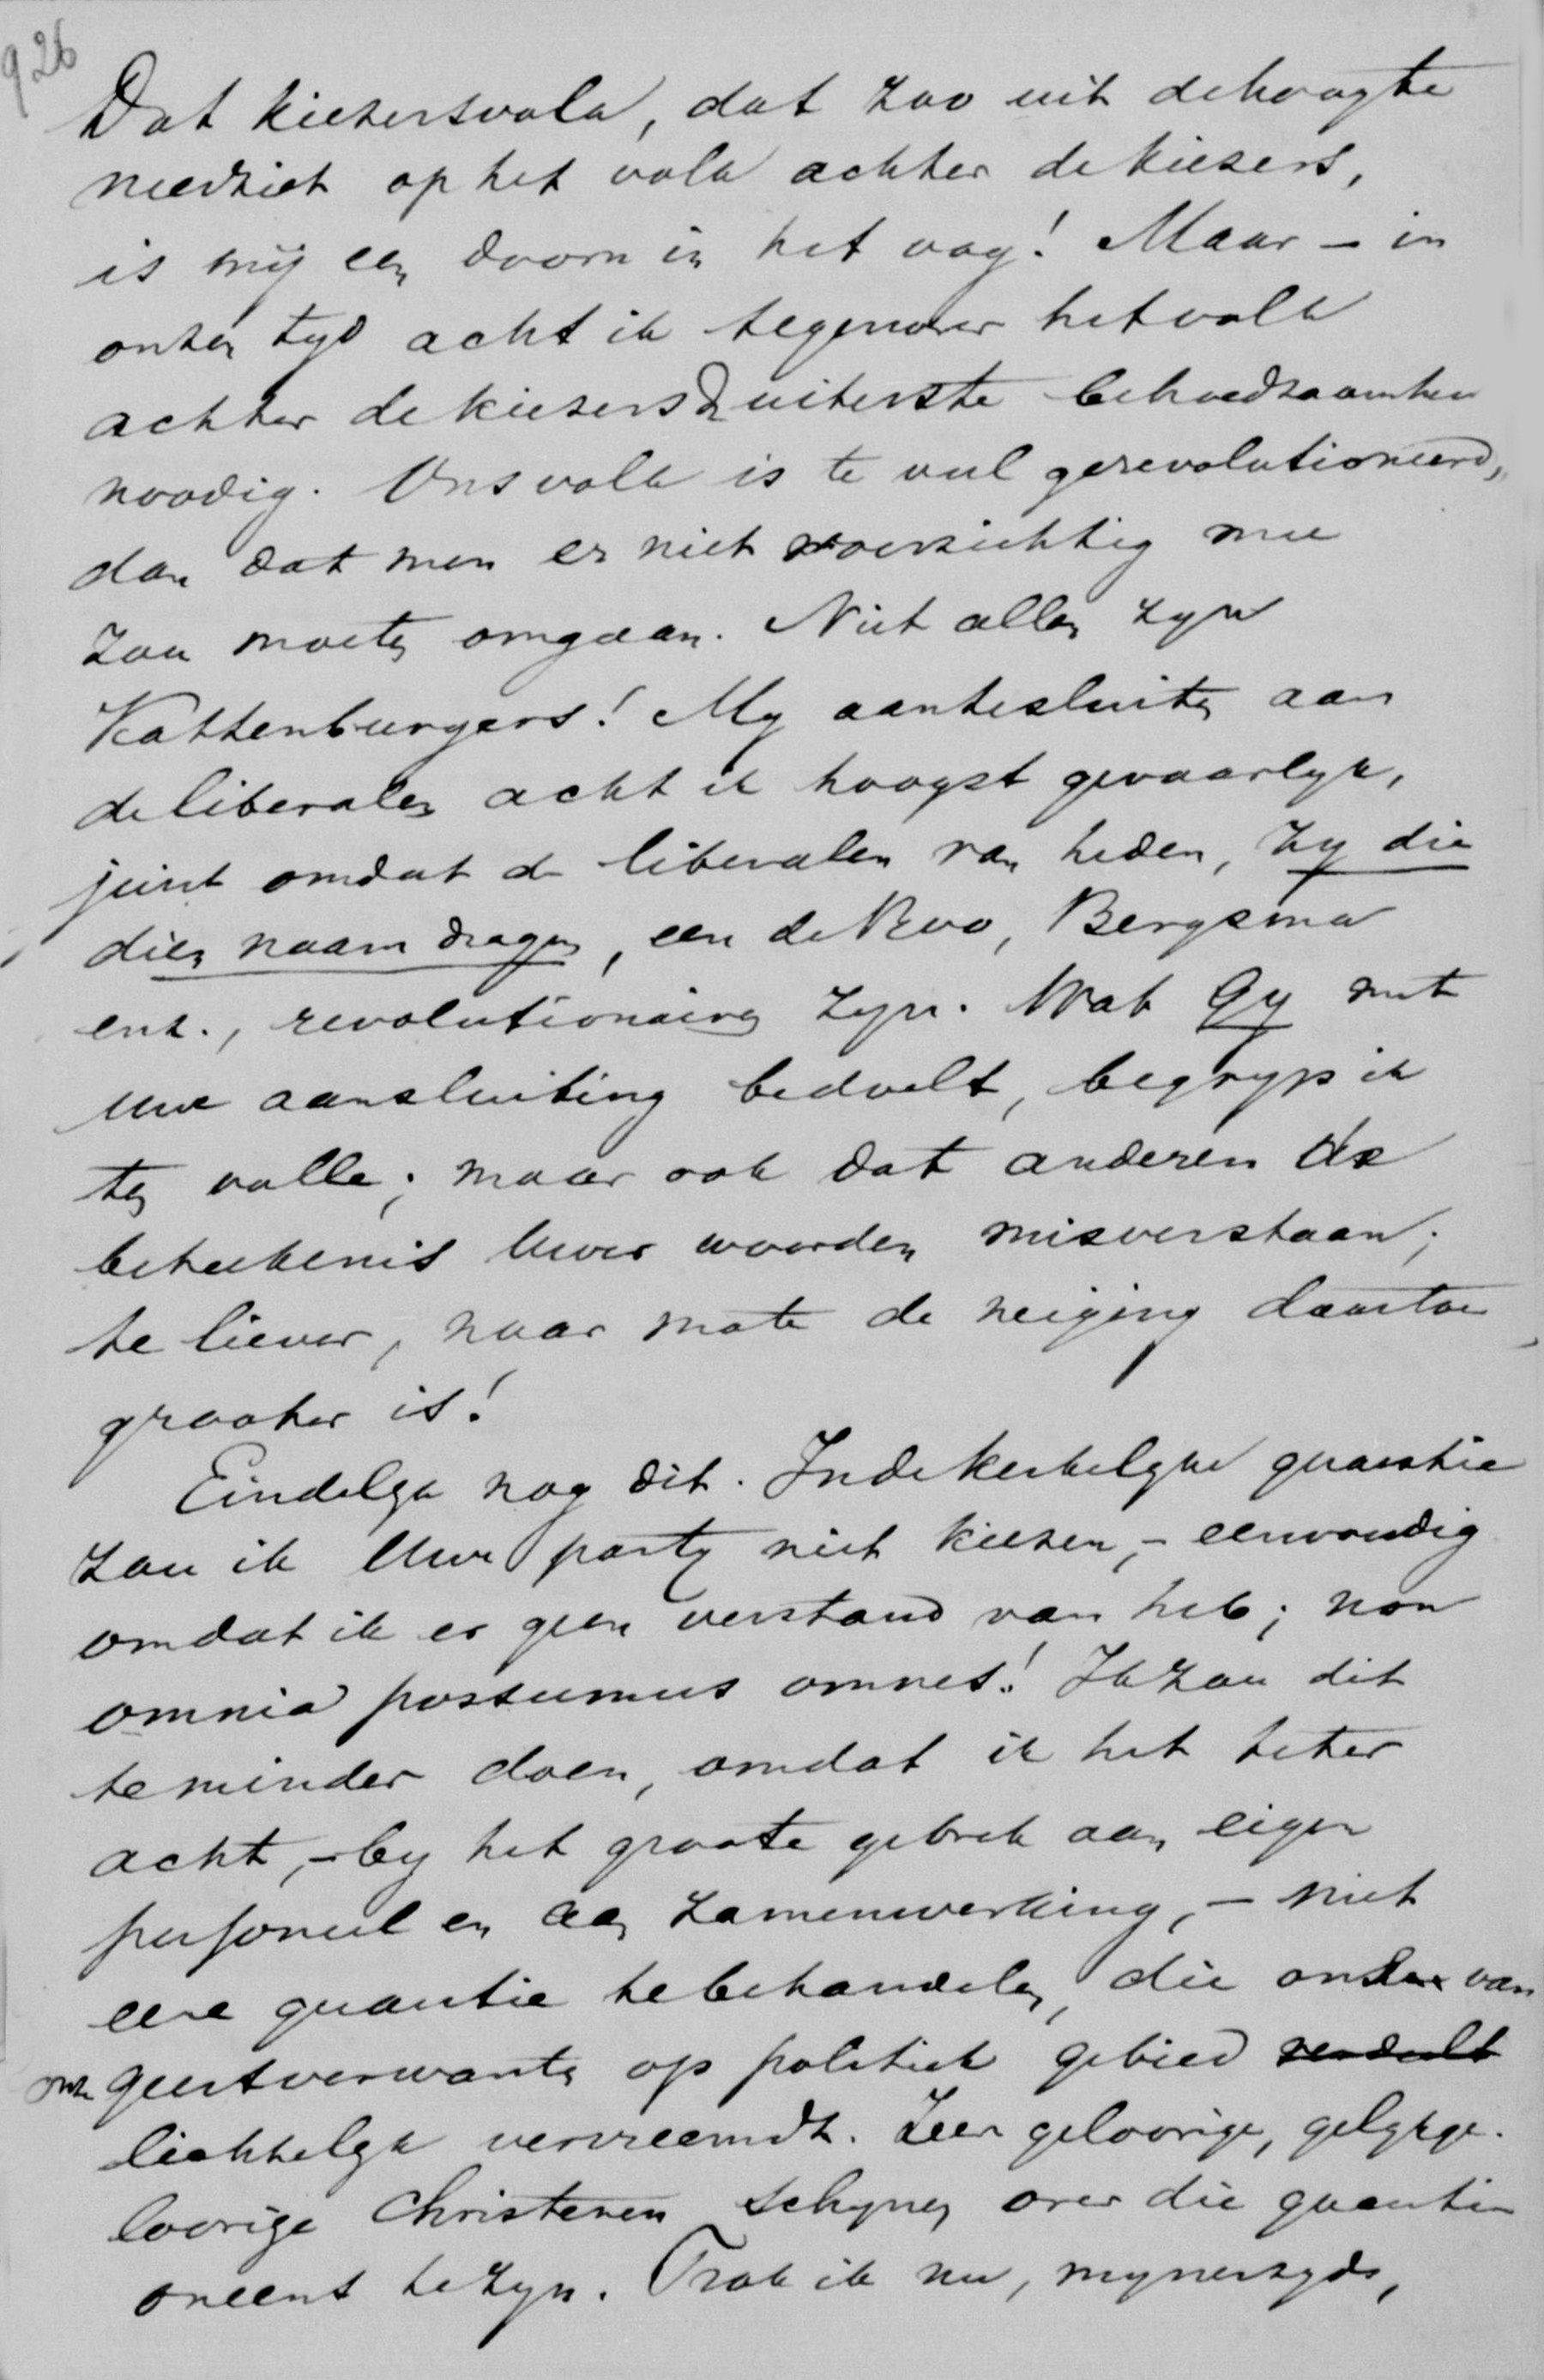 926
Dat kiezersvolk, dat zoo uit de hoogte
neerziet op het volk achter de kiezers,
is mij een doorn in het oog! Maar – in
onzen tyd acht ik tegenover het volk
achter de kiezers de uiterste behoedzaamheid
noodig. Ons volk is te veel gerevolutioneerd,
dan dat men er niet voorzichtig mee
zou moeten omgaan. Niet allen zyn
Kattenburgers! My aantesluiten aan
de liberalen acht ik hoogst gevaarlyk,
juist omdat de liberalen van heden, zy die
dien naam dragen, een de Roo, Bergsma
enz., revolutionairen zyn. Wat Gy met
uwe aansluiting bedoelt, begryp ik
ten volle; maar ook dat anderen de
beteekenis Uwer woorden misverstaan;
te liever, naar mate de neiging daartoe
grooter is!
Eindelyk nog dit. In de kerkelyke quaestie
zou ik Uwe party niet kiezen, – eenvoudig
omdat ik er geen verstand van heb; non
omnia possumus omnes! Ik zou dit
te minder doen, omdat ik het beter
acht, – by het groote gebrek aan eigen
personeel en aan zamenwerking, – niet
eene quaestie te behandelen, die onder van
onze geestverwanten op politiek gebied verdeelt
lichtelyk vervreemdt. Zeer geloovige, gelykge-
loovige Christenen schynen over die quaestie
oneens te zyn. Trok ik nu, mynerzyds,